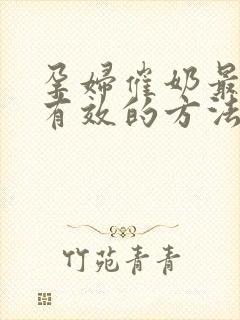 孕婦催奶最
有效的方法
竹苑青青